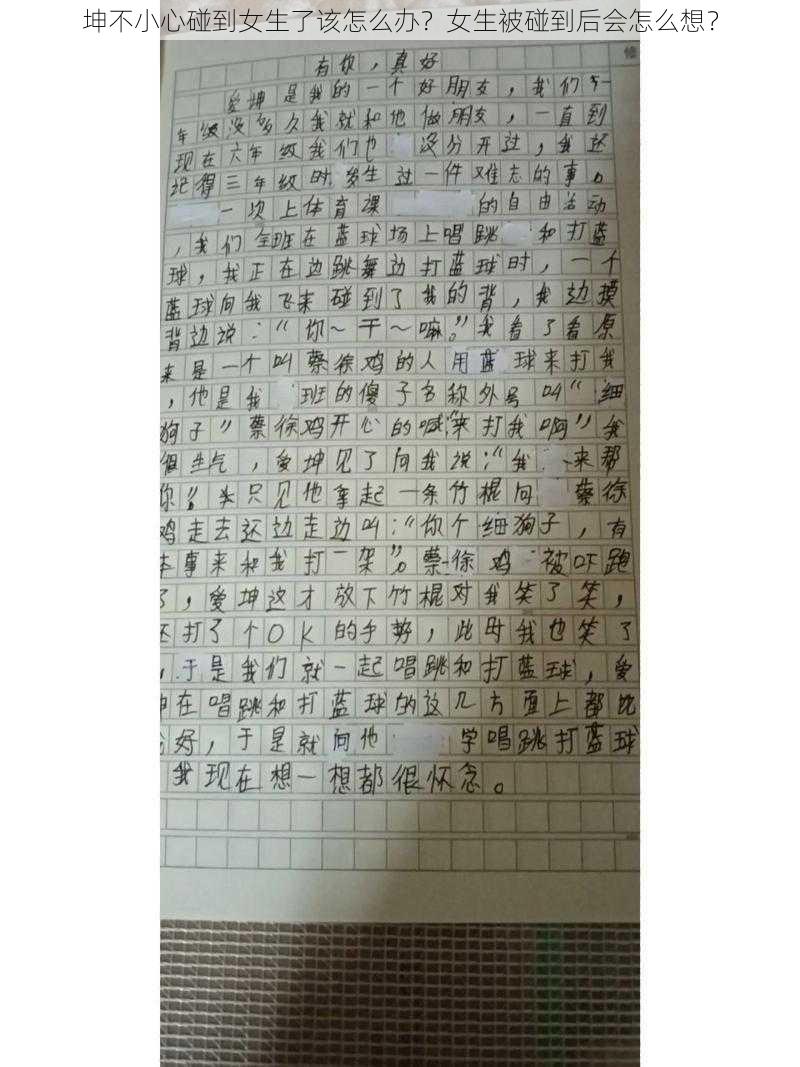 坤不小心碰到女生了该怎么办？女生被碰到后会怎么想？
有你，真好
爱坤是我的一个好朋友，我们一
年级没多久我就和他做朋友，一直到
现在六年级我们也没分开过，我还
记得三年级时发生过一件难忘的事。
一次上体育课的自由活动
，我们全班在蓝球场上唱跳和打蓝
球，我正在边跳舞边打蓝球时，一个
蓝球向我飞来碰到了我的背，我边摸
背边说：“你～干～嘛。”我看了看原
来是一个叫蔡徐鸡的人用蓝球来打我
，他是我班的傻子名称外号叫“细
狗子”蔡徐鸡开心的喊“来打我啊”我
很生气，爱坤见了向我说：“我来帮
你。”只见他拿起一条竹棍向蔡徐
鸡走去还边走边叫：“你个细狗子，有
本事来和我打一架”。蔡徐鸡被吓跑
了，爱坤这才放下竹棍对我笑了笑，
还打了个OK的手势，此时我也笑了
，于是我们就一起唱跳和打蓝球，爱
坤在唱跳和打蓝球的这几方面上都比
我好，于是就向他学唱跳打蓝球
我现在想一想都很怀念。